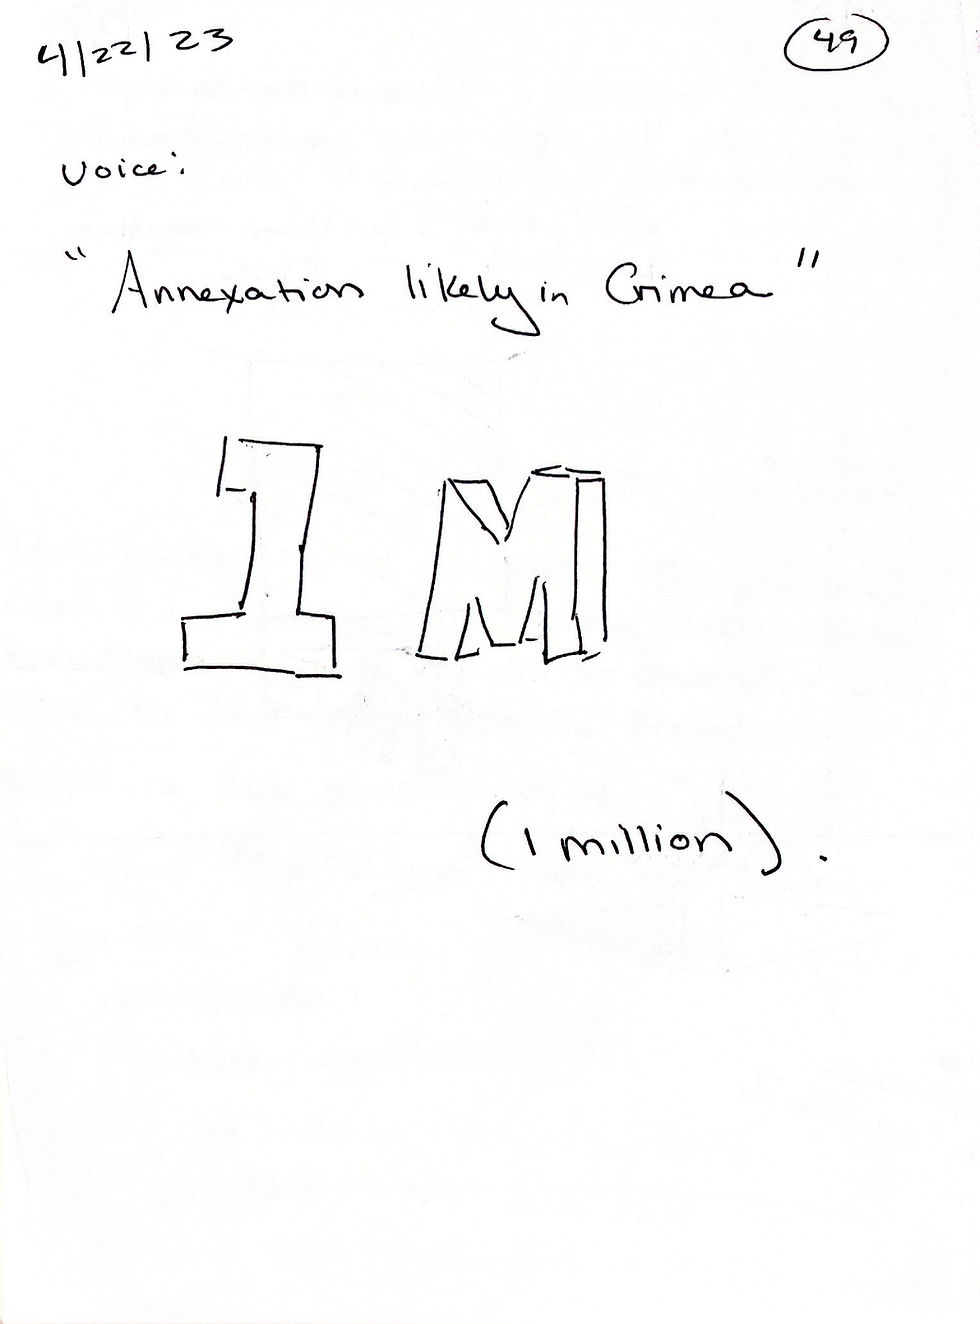 4/22/23
49
Voice:
"Annexation likely in Crimea"
1 M
(1 million).